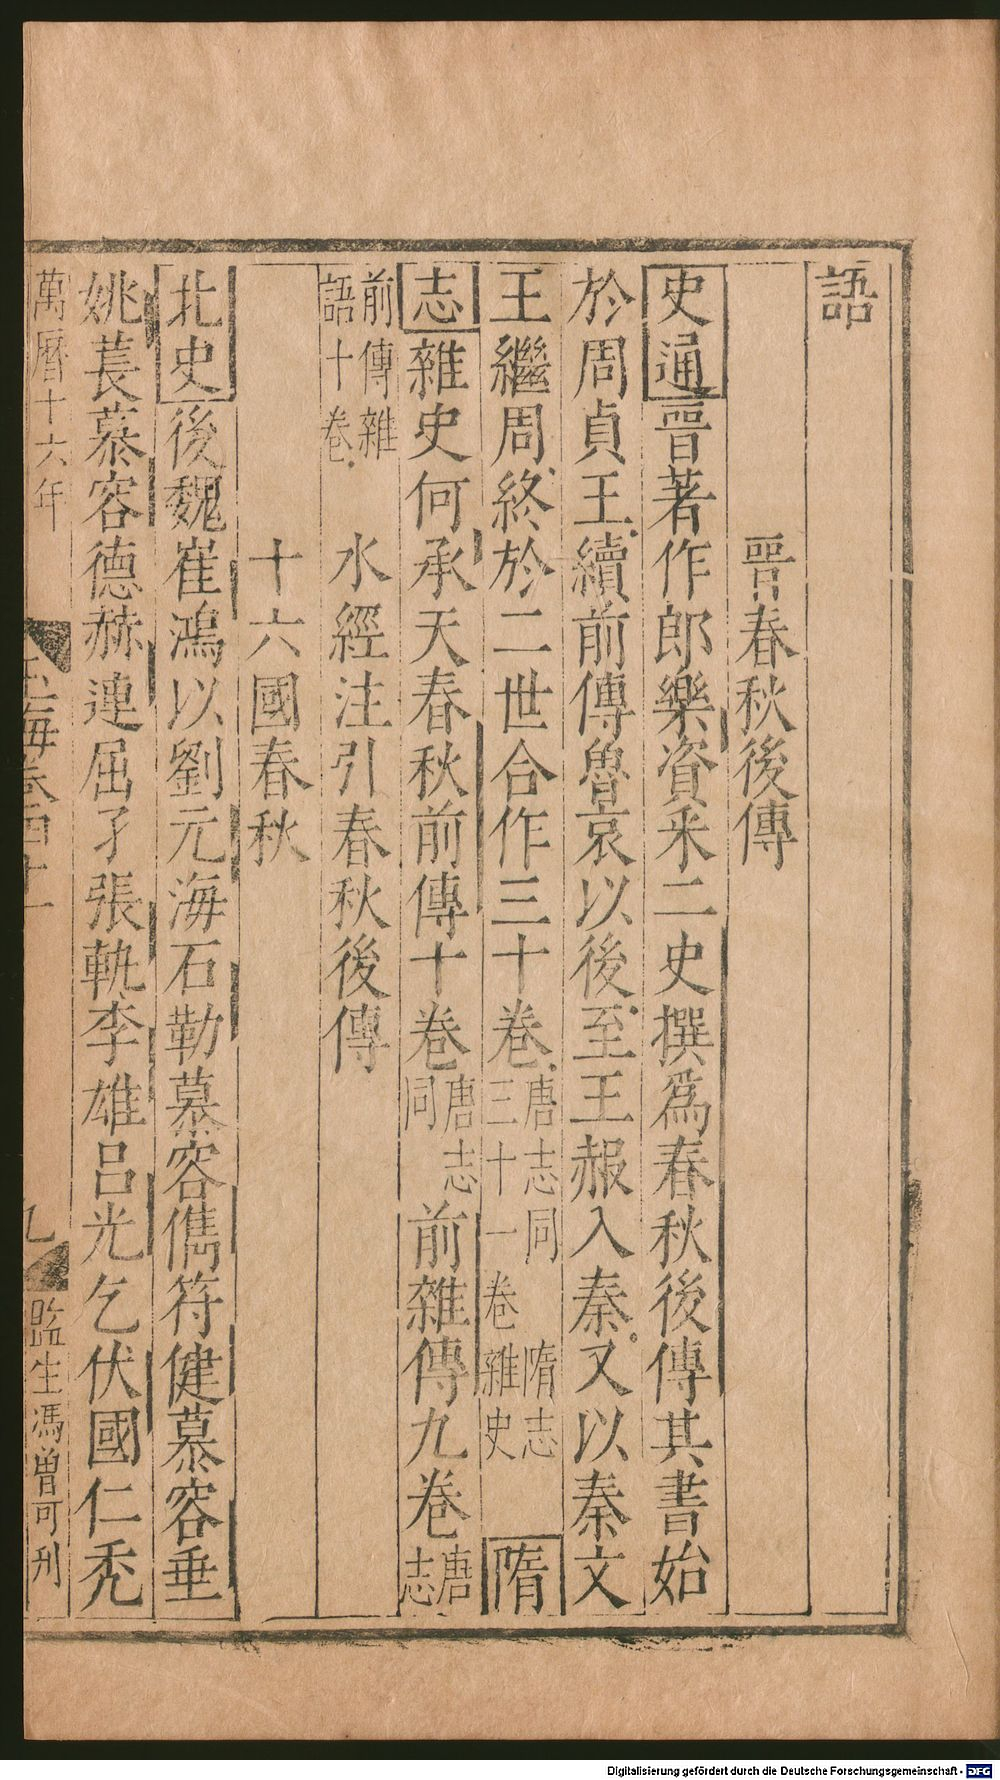 語
晉春秋後傳
史通晉著作郎樂資采二史撰爲春秋後傳其書始
於周貞王續前傳魯哀以後至王赧入秦又以秦文
王繼周終於二世合作三十卷唐志同隋志三十一卷雜史隋
志雜史何承天春秋前傳十卷唐志同前雜傳九卷唐志
前傳雜語十卷水經注引春秋後傳
十六國春秋
北史後魏崔鴻以劉元海石勒慕容儁符健慕容垂
姚萇慕容德赫連屈孑張軌李雄呂光乞伏國仁禿
萬曆十六年
玉海卷四十一
九
監生馮曾可刋
Digitalisierung gefördert durch die Deutsche Forschungsgemeinschaft - DFG